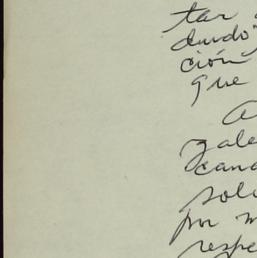 tar
dudo
ción
que
A
gale
cand
soli
por m
respe